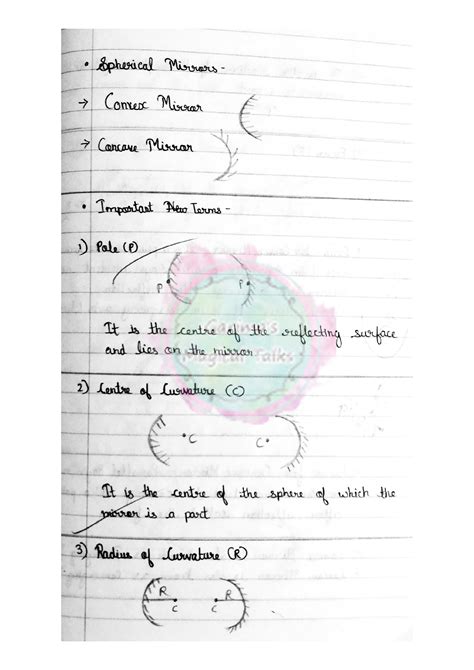 • Spherical Mirrors -
→ Convex Mirror
→ Concave Mirror
• Important New Terms -
1) Pole (P)
P P
It is the centre of the reflecting surface
and lies on the mirror
Magical Talks
2) Centre of Curvature (C)
C C
It is the centre of the sphere of which the
mirror is a part
3) Radius of Curvature (R)
R R
C C